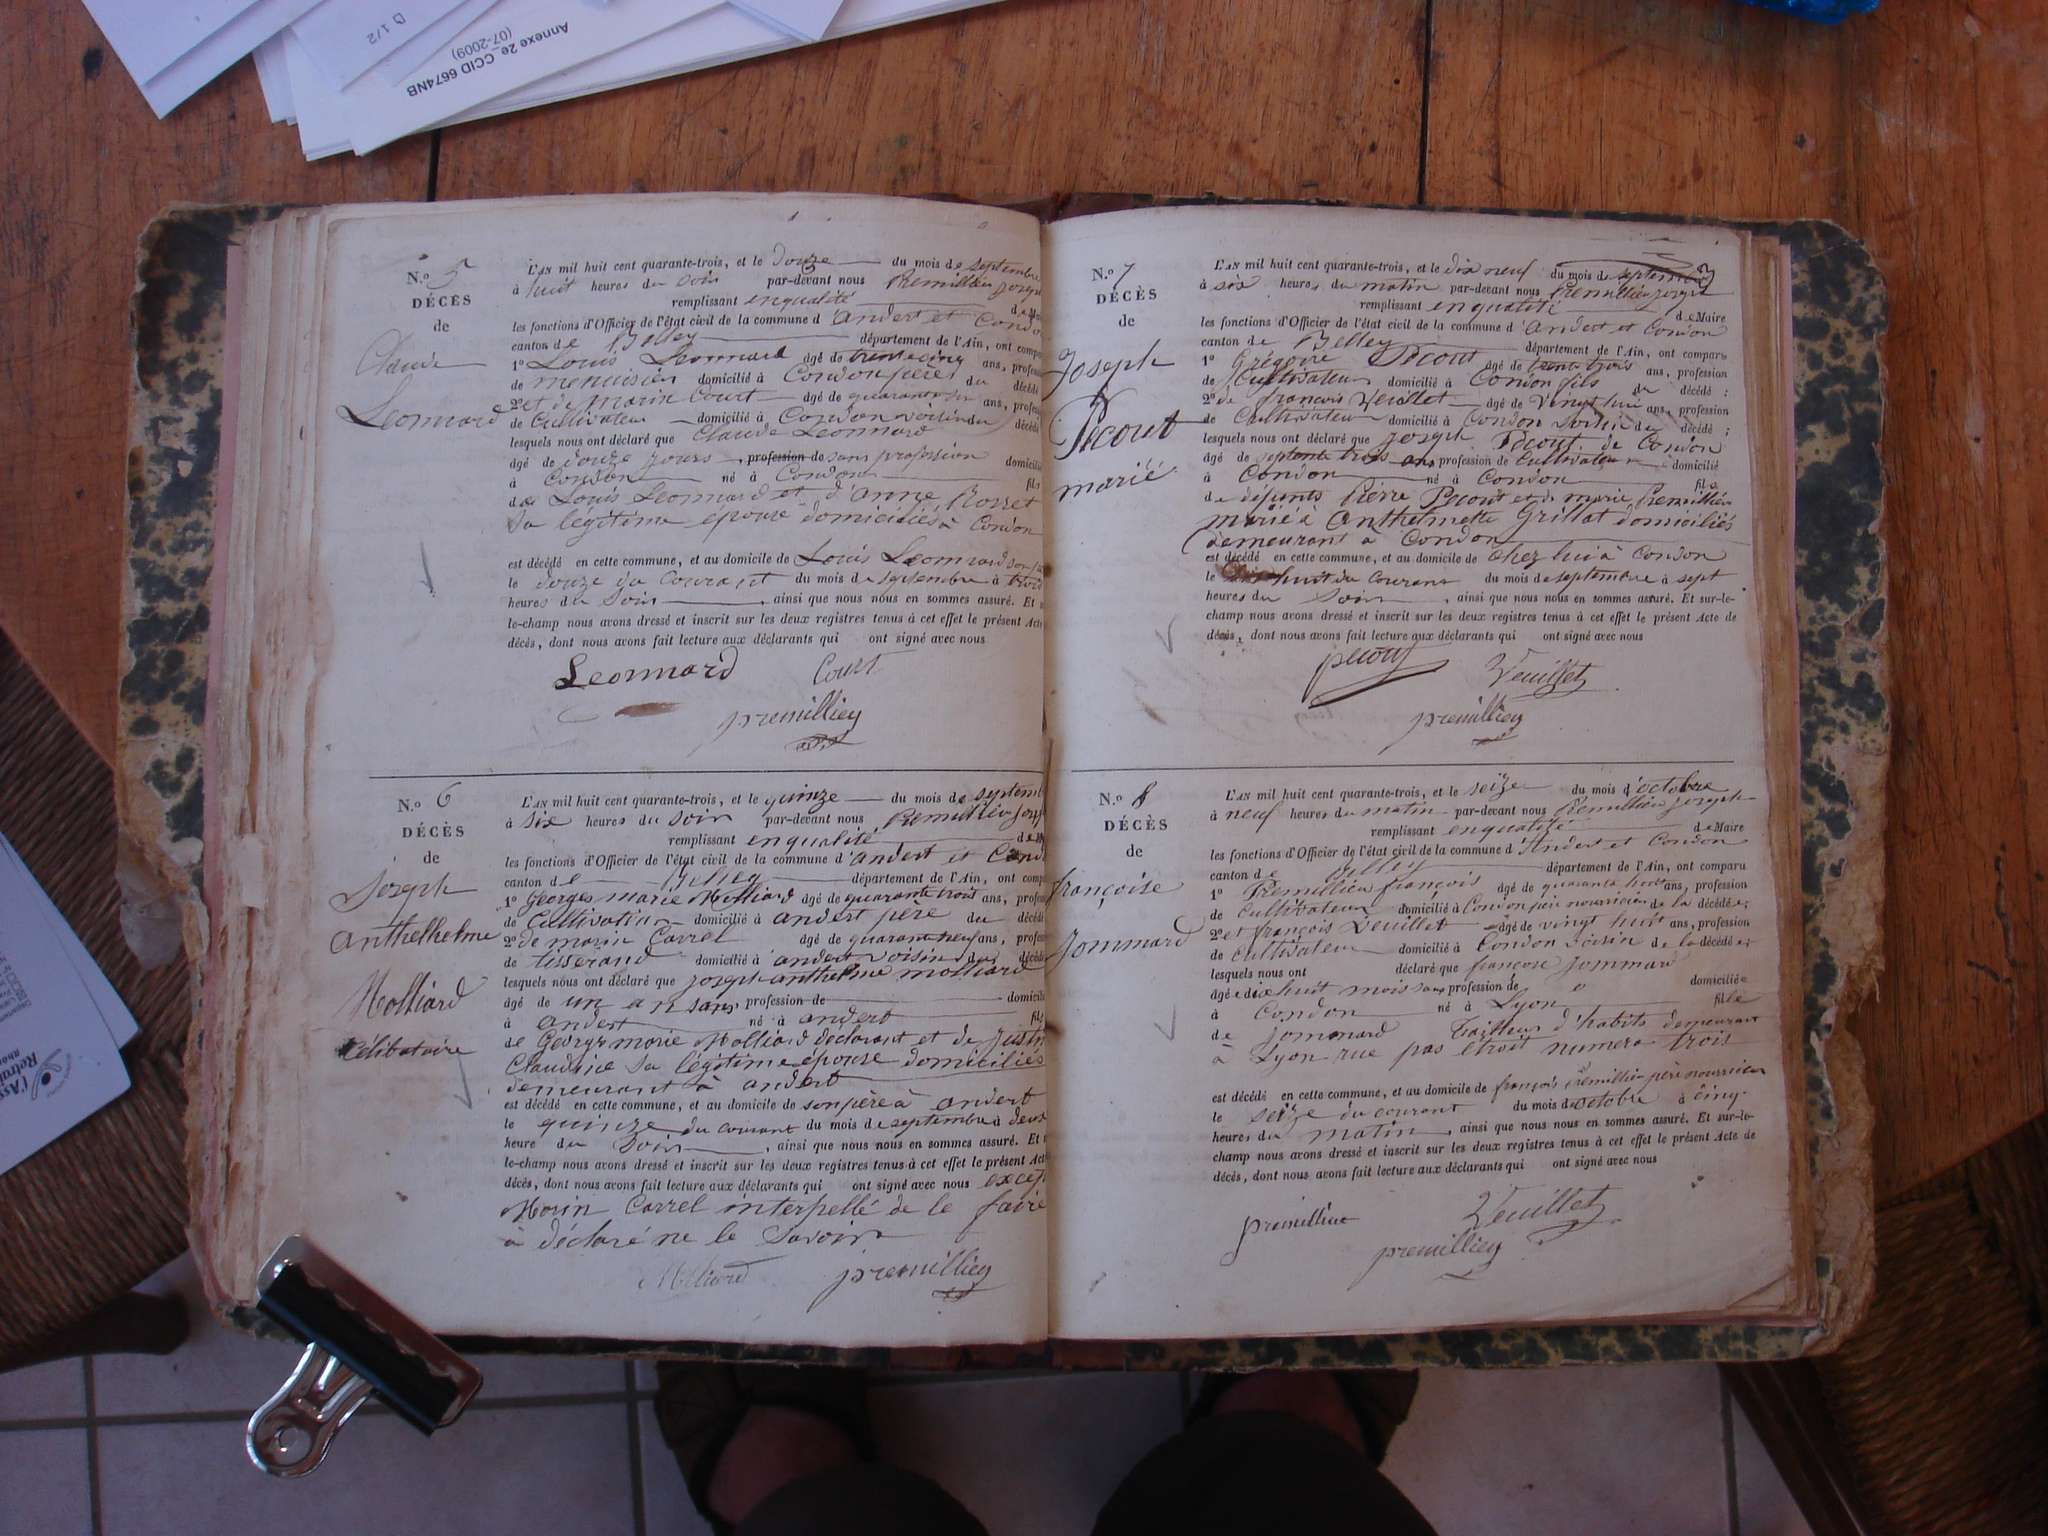 D 1/2
Annexe 2e_CCID 6674NB
(07-2009)
N.o 5
DÉCÈS
de
Claude
Leonnard
L'AN mil huit cent quarante-trois, et le douze du mois de septembre
à huit heures du soir par-devant nous Premillieu Joseph
remplissant en qualité de Maire
les fonctions d'Officier de l'état civil de la commune d'andert et Condon
canton de Belley département de l'Ain, ont comparu
1o Louis Leonnard âgé de trente cinq ans, profession
de menuisier domicilié à Condon père du décédé
2o et de marin Court âgé de quarante six ans, profession
de Cultivateur domicilié à Condon voisin du décédé
lesquels nous ont déclaré que Claude Leonnard
âgé de douze jours, profession de sans profession domicilié
à Condon né à Condon fils
de Louis Leonnard et d'anne Rosset
sa légitime épouse domiciliés à Condon
est décédé en cette commune, et au domicile de Louis Leonnard son
le douze du courant du mois de septembre à trois
heures du soir, ainsi que nous nous en sommes assuré. Et
le-champ nous avons dressé et inscrit sur les deux registres tenus à cet effet le présent Acte
décès, dont nous avons fait lecture aux déclarants qui ont signé avec nous
Leonnard Court
premillieu
N.o 6
DÉCÈS
de
Joseph
Anthelhelme
Molliard
Célibataire
L'AN mil huit cent quarante-trois, et le quinze du mois de septemb
à six heures du soir par-devant nous Premillieu Jose
remplissant en qualité de M
les fonctions d'Officier de l'état civil de la commune d'andert et Cond
canton de Belley département de l'Ain, ont compa
1o Georges marie Molliard âgé de quarante trois ans, profes
de Cultivateur domicilié à andert père du décédé
2o de marin Carrel âgé de quarante neuf ans, profes
de tisserand domicilié à andert voisin du décédé
lesquels nous ont déclaré que joseph anthelme molliard
âgé de un an sans profession de domicilié
à andert né à andert fils
de Georges marie Molliard déclarant et de Justin
Claudine sa légitime épouse domiciliés
demeurant à andert
est décédé en cette commune, et au domicile de son père à andert
le quinze du courant du mois de septembre à deux
heure du soir, ainsi que nous nous en sommes assuré. Et
le-champ nous avons dressé et inscrit sur les deux registres tenus à cet effet le présent Act
décès, dont nous avons fait lecture aux déclarants qui ont signé avec nous excep
Morin Carrel interpellé de le faire
à déclaré ne le Savoir
Molliard premillieu
N.o 7
DÉCÈS
de
Joseph
Pecout
marié
L'AN mil huit cent quarante-trois, et le dix neuf du mois de septembre
à six heures du matin par-devant nous Premillieu joseph
remplissant en qualité de Maire
les fonctions d'Officier de l'état civil de la commune d'andert et Condon
canton de Belley département de l'Ain, ont comparu
1o Grégoire Pecout âgé de trente trois ans, profession
de Cultivateur domicilié à Condon fils du décédé ;
2o de françois Veuillet âgé de vingt huit ans, profession
de Cultivateur domicilié à Condon voisin du décédé ;
lesquels nous ont déclaré que joseph Pecout de Condon
âgé de septente trois ans, profession de Cultivateur domicilié
à Condon né à Condon fils
de défunts Pierre Pecout et de marie Premillieu
marié à Anthelmette Grillat domiciliés
demeurant à Condon
est décédé en cette commune, et au domicile de Chez lui à Condon
le huit du courant du mois de septembre à sept
heures du soir, ainsi que nous nous en sommes assuré. Et sur-le-
champ nous avons dressé et inscrit sur les deux registres tenus à cet effet le présent Acte de
décès, dont nous avons fait lecture aux déclarants qui ont signé avec nous
pecout Veuillet
premillieu
N.o 8
DÉCÈS
de
françoise
Jommard
L'AN mil huit cent quarante-trois, et le seize du mois d'octobre
à neuf heures du matin par-devant nous Premillieu joseph
remplissant en qualité de Maire
les fonctions d'Officier de l'état civil de la commune d'Andert et Condon
canton de Belley département de l'Ain, ont comparu
1o Premillieu françois âgé de quarante huit ans, profession
de Cultivateur domicilié à Condon père nourricier de la décédée ;
2o et françois Veuillet âgé de vingt huit ans, profession
de Cultivateur domicilié à Condon voisin de la décédée ;
lesquels nous ont déclaré que françoise Jommard
âgée dix huit mois sans profession de domiciliée
à Condon né à Lyon fille
de Jommard Tailleur d'habits demeurant
à Lyon rue pas étroit numero trois
est décédé en cette commune, et au domicile de françois Premillieu père nourricier
le seize du courant du mois d'octobre à cinq
heures du matin, ainsi que nous nous en sommes assuré. Et sur-le-
champ nous avons dressé et inscrit sur les deux registres tenus à cet effet le présent Acte de
décès, dont nous avons fait lecture aux déclarants qui ont signé avec nous
premillieu Veuillet
premillieu